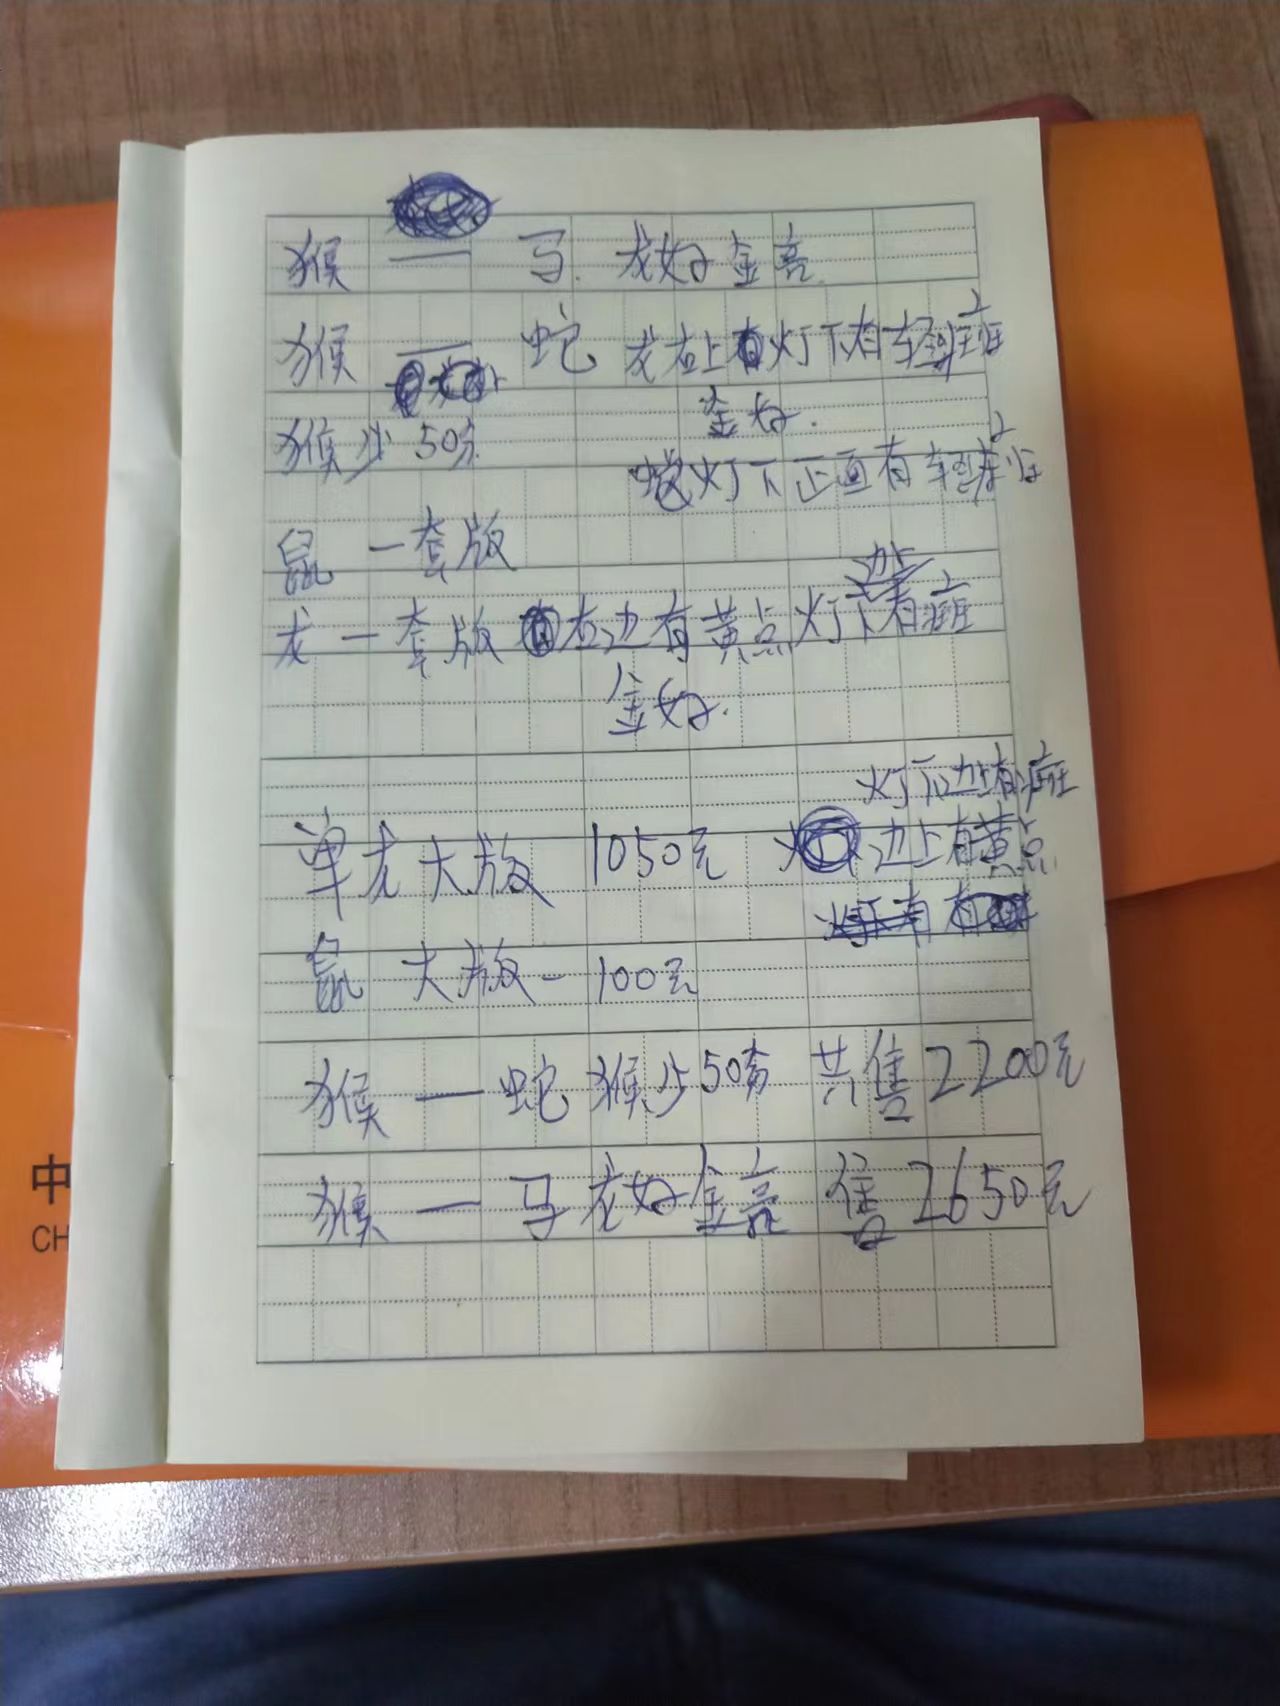 猴 — 马. 龙好金亮.
猴 — 蛇 龙右上灯下有轻斑
金好.
猴少50张
蛇灯下正面有轻
鼠 一套版
边上
龙一套版 右边有黄点灯下有
金好.
灯下边上有
单龙大版 1050元 边上有黄点
鼠 大版— 100元
猴 — 蛇 猴少50张 共售2200元
猴 — 马 龙好金亮 售2650元
中
CH